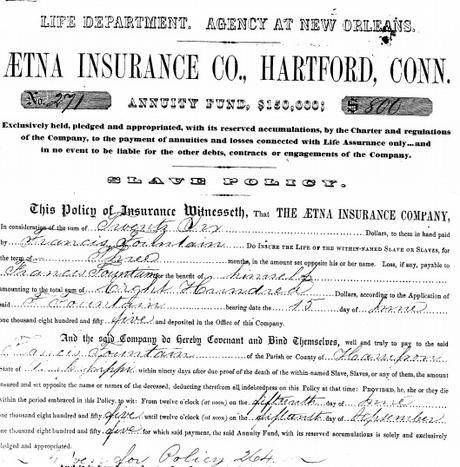 LIFE DEPARTMENT. AGENCY AT NEW ORLEANS.
ÆTNA INSURANCE CO., HARTFORD, CONN.
No. 271 ANNUITY FUND, $150,000; $ 800
Exclusively held, pledged and appropriated, with its reserved accumulations, by the Charter and regulations
of the Company, to the payment of annuities and losses connected with Life Assurance only...and
in no event to be liable for the other debts, contracts or engagements of the Company.
SLAVE POLICY.
This Policy of Insurance Witnesseth, That THE ÆTNA INSURANCE COMPANY,
In consideration of the sum of Twenty Six Dollars, to them in hand paid
by Francis Fountain Do INSURE THE LIFE OF THE WITHIN-NAMED SLAVE OR SLAVES, FOR
the term of Three months, in the amount set opposite his or their name. Loss, if any, payable to
Francis Fountain for the benefit of himself
amounting to the total sum of Eight Hundred Dollars, according to the Application of
said F Fountain bearing date the 15 day of June
one thousand eight hundred and fifty five and deposited in the Office of this Company.
And the said Company do hereby Covenant and Bind Themselves, well and truly to pay to the said
Francis Fountain of the Parish or County of Harrison
State of within ninety days after due proof of the death of the within-named Slave, Slaves, or any of them, the amount
insured and set opposite the name or names of the deceased, deducting therefrom all indebtedness on this Policy at that time: PROVIDED, he, she or they die
within the period embraced in this Policy, to wit: From twelve o'clock (at noon) on the fifteenth day of June
one thousand eight hundred and fifty five until twelve o'clock (at noon) on the fifteenth day of September
one thousand eight hundred and fifty five for which said payment, the said Annuity Fund, with its reserved accumulations is solely and exclusively
pledged and appropriated.
for Policy 264